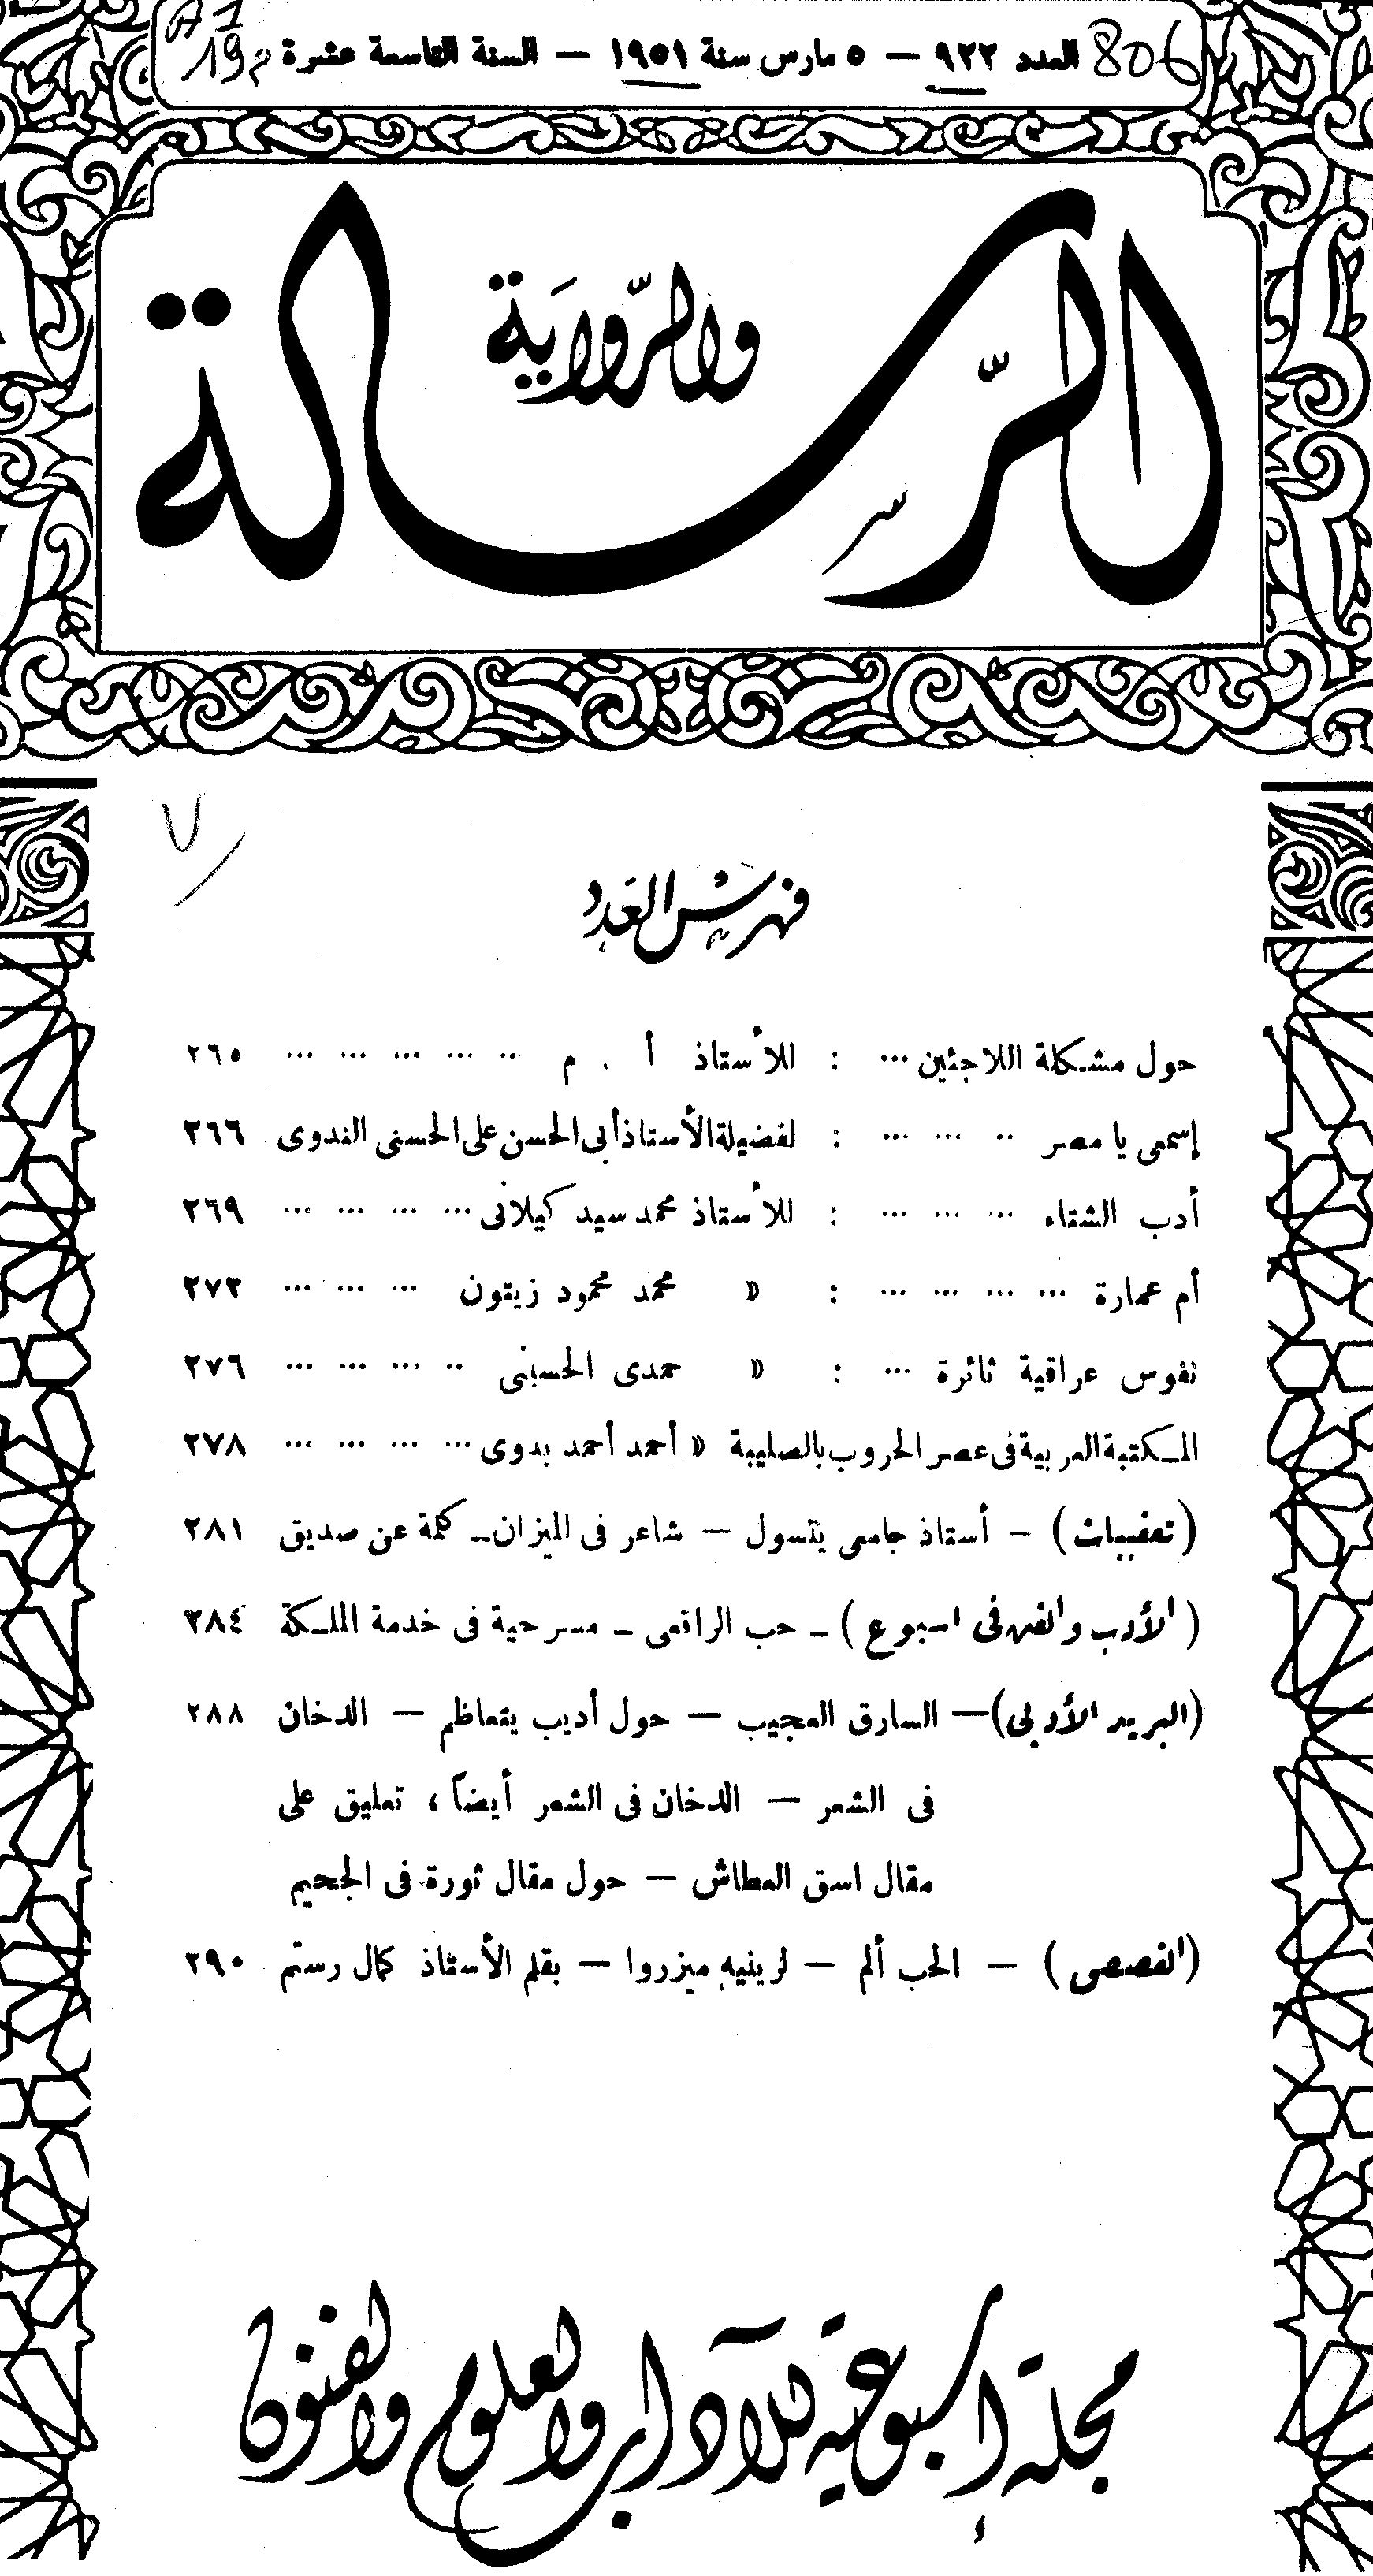 العدد ٩٢٢ — ٥ مارس سنة ١٩٥١ — السنة التاسعة عشرة
806
19م
الرسالة
والرواية
٧
فهرس العدد
حول مشكلة اللاجئين ... : للأستاذ أ . م .. ... ... ... ... ٢٦٥
إسمعى يا مصر .. ... ... : لفضيلة الأستاذ أبى الحسن على الحسنى الندوى ٢٦٦
أدب الشتاء ... ... ... : للأستاذ محمد سيد كيلانى ... ... ... ... ٢٦٩
أم عمارة ... ... ... ... : « محمد محمود زيتون ... ... ... ٢٧٢
نفوس عراقية ثائرة ... : « حمدى الحسينى .. ... ... ... ٢٧٦
المكتبة العربية فى عصر الحروب بالصليبة « أحمد أحمد بدوى ... ... ... ... ٢٧٨
(تعقيبات) – أستاذ جامعى يتسول — شاعر فى الميزان – كلمة عن صديق ٢٨١
(الأدب والفن فى اسبوع) – حب الرافعى – مسرحية فى خدمة الملكة ٢٨٤
(البريد الأدبى) — السارق العجيب — حول أديب يتعاظم — الدخان ٢٨٨
فى الشعر — الدخان فى الشعر أيضاً ، تعليق على
مقال اسق العطاش — حول مقال ثورة فى الجحيم
(القصص) — الحب ألم — لرينيه ميزروا — بقلم الأستاذ كمال رستم ٢٩٠
مجلة إسبوعية للآداب والعلوم والفنون